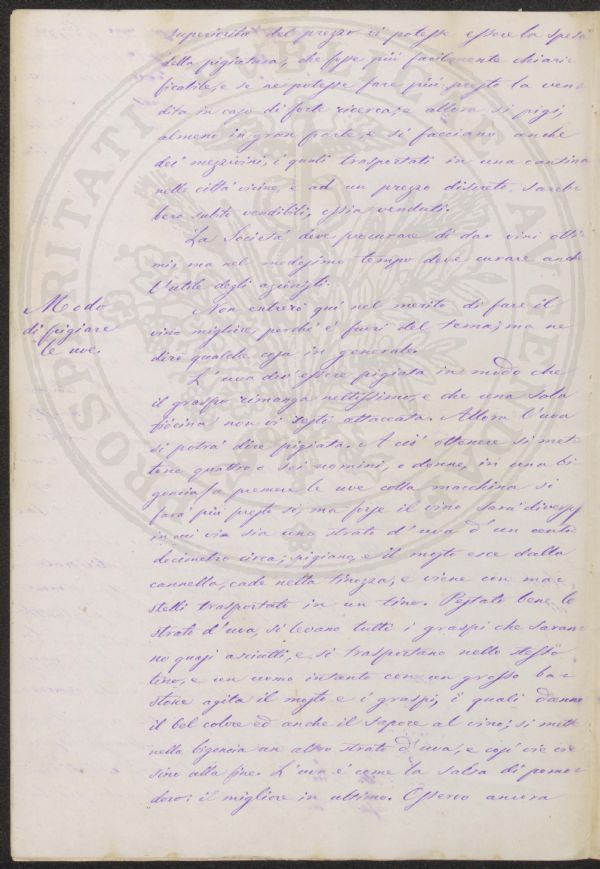 superiorità del prezzo vi potesse essere la spesa
della pigiatura, che fosse più facilmente chiari-
ficabile, e se ne potesse fare più presto la ven-
dita in caso di forte ricerca; e allora si pigi,
almeno in gran parte, e si facciano anche
dei mezzivini, i quali trasportati in una cantina
nelle città vicine, e ad un prezzo discreto, sareb-
bero subito vendibili, ossia venduti.
La Società deve procurare di dar vini otti-
mi, ma nel medesimo tempo deve curare anche
l'utile degli azionisti.
Modo
di pigiare
le uve.
Non entrerò quì nel merito di fare il
vino migliore, perchè è fuori del tema; ma ne
dirò qualche cosa in generale.
L'uva dev'essere pigiata in modo che
il graspo rimanga nettissimo, e che una sola
fiocina non vi resti attaccata. Allora l'uva
si potrà dire pigiata. A ciò ottenere si met-
tono quattro o sei uomini, o donne, in una bi-
goncia (a premere le uve colla macchina si
farà più presto sì, ma forse il vino sarà diverso)
in cui via sia uno strato d'uva d'un
decimetro circa; pigiano, e il mosto esce dalla
cannella, cade nella tinozza, e viene con ma-
stelli trasportato in un tino. Pestato bene lo
strato d'uva, si levano tutti i graspi che saran-
no quasi asciutti, e si trasportano nello stesso
tino, e un uomo intanto con un grosso ba-
stone agita il mosto e i graspi, i quali danno
il bel colore ed anche il sapore al vino; si mette
nella bigoncia un altro strato d'uva, e così via via
sino alla fine. L'uva è come la salsa di pomo-
doro: il migliore in ultimo. Osservo ancora